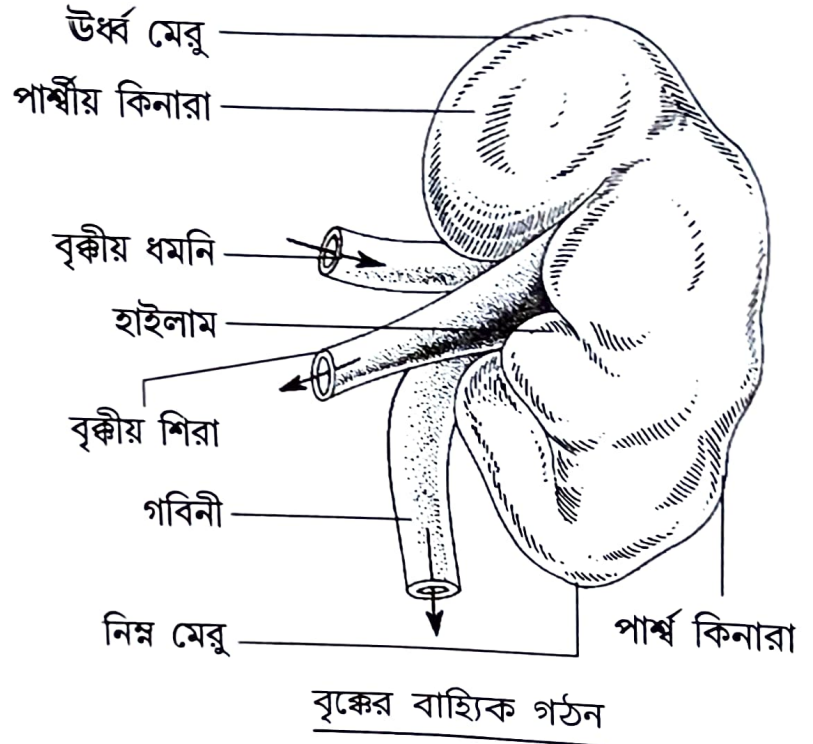 ঊর্ধ্ব মেরু
পার্শ্বীয় কিনারা
বৃক্কীয় ধমনি
হাইলাম
বৃক্কীয় শিরা
গবিনী
নিম্ন মেরু
পার্শ্ব কিনারা
বৃক্কের বাহ্যিক গঠন